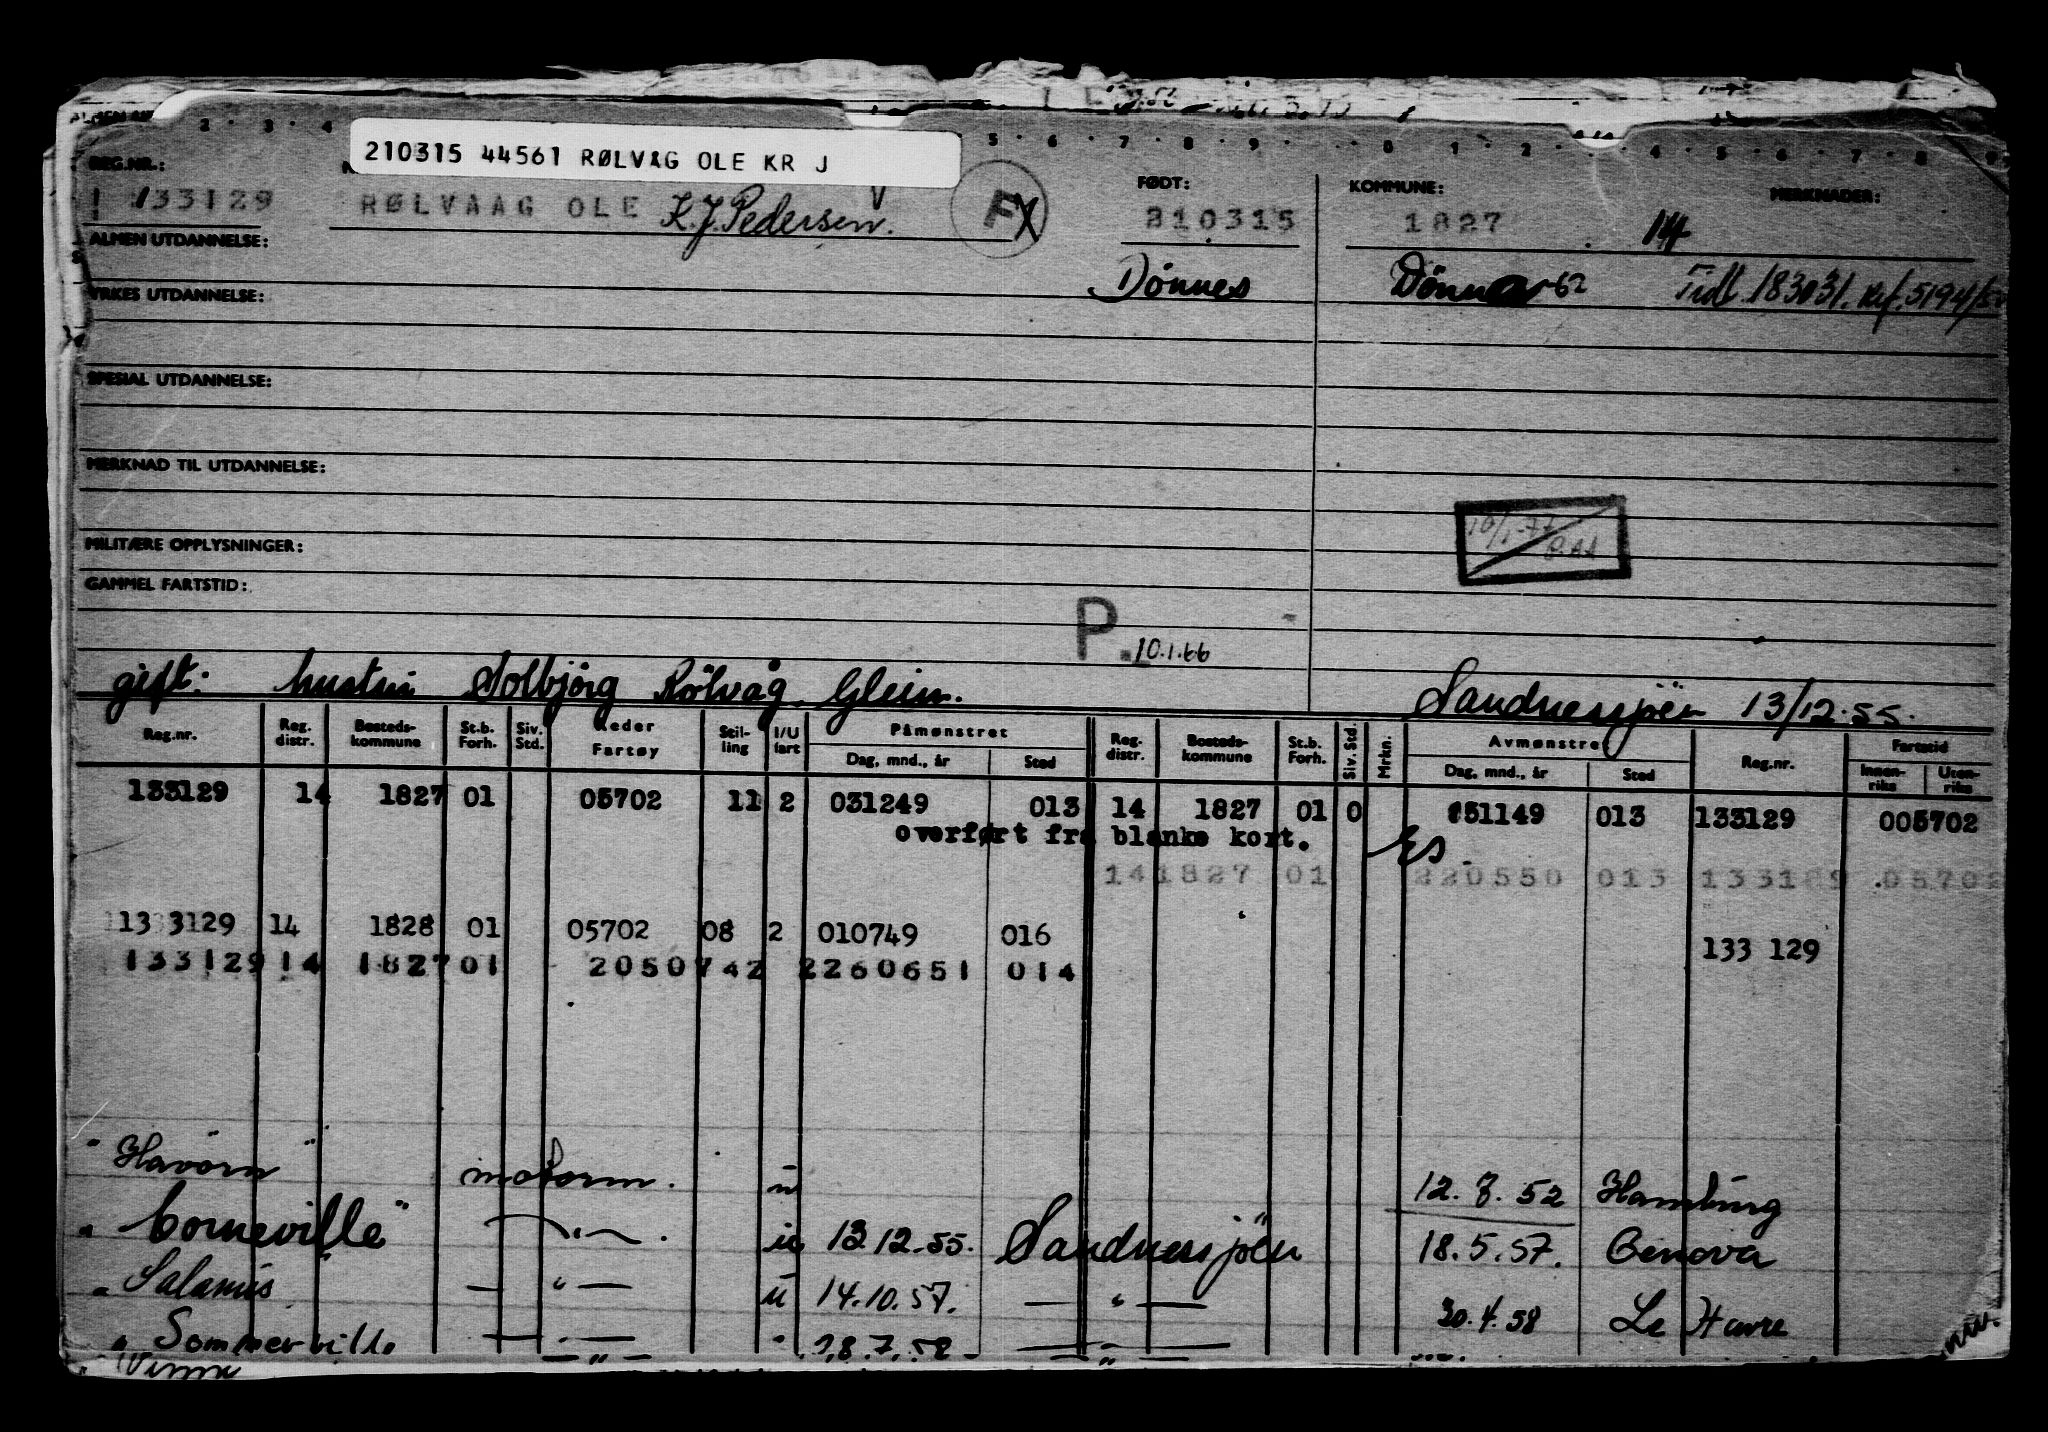 210315 44561 RØLVAG OLE KR J
REG.NR.: FØDT: KOMMUNE: MERKNADER:
133129 RØLVAAG OLE K.J. Pedersen. F 210315 1827 14
ALMEN UTDANNELSE:
Dönnes Dönna 62 Tidl. 183031.
YRKES UTDANNELSE:
SPESIAL UTDANNELSE:
MERKNAD TIL UTDANNELSE:
MILITÆRE OPPLYSNINGER:
GAMMEL FARTSTID:
P. 10.1.66
gift: hustru Solbjörg Rölvåg, Glein. Sandnessjöen 13/12.55.
Reg.nr. Reg. distr. Bosteds-kommune St.b. Forh. Siv. Std. Reder Fartøy Stil-ling I/U fart Påmønstret Dag, mnd., år Sted Reg. distr. Bosteds-kommune St.b. Forh. Siv. Std. Mrkn. Avmønstret Dag, mnd., år Sted Reg.nr. Fartstid Innen-riks Uten-riks
133129 14 1827 01 05702 11 2 031249 013 14 1827 01 0 51149 013 133129 005702
overført fra blanke kort. Es
14 1827 01 220550 013 05702
133129 14 1828 01 05702 08 2 010749 016 133 129
133129 14 1827 01 2050742 2260651 014
"Havörn" motorm. u 12.7.52 Hamburg
"Corneville" — " — . u 13.12.55. Sandnessjöen 18.5.57. Genova
" Salamis — " — u 14.10.57. — " — 30.4.58 Le Havre
" Sommerville — " — 28.7.58 — " —